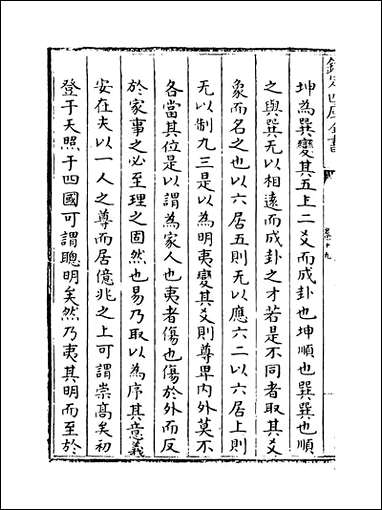 欽定四庫全書
卷十九
坤為巽變其五上二爻而成卦也坤順也巽巽也順
之與巽无以相遠而成卦之才若是不同者取其爻
象而名之也以六居五則无以應六二以六居上則
无以制九三是以為明夷變其爻則尊卑内外莫不
各當其位是以謂為家人也夷者傷也傷於外而反
於家事之必至理之固然也易乃取以為序其意義
安在夫以一人之尊而居億兆之上可謂崇高矣初
登于天照于四國可謂聰明矣然乃夷其明而至於